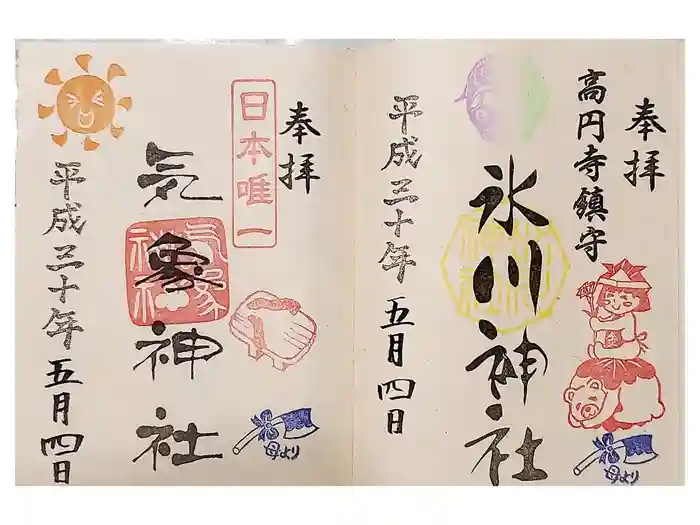 奉拝
高円寺鎮守
氷川神社
平成三十年
五月四日
金
母より
奉拝
日本唯一
気象神社
気象神社
平成三十年
五月四日
母より